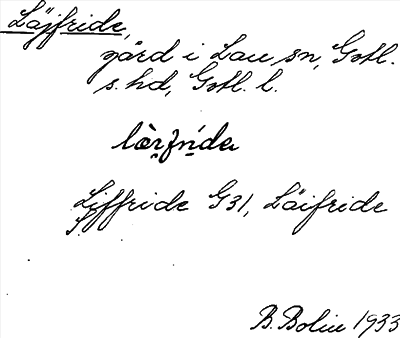 Läjfride,
gård i Lau sn, Gotl.
s. hd, Gotl. l.
Liffride G31, Läifride
B. Bolin 1933